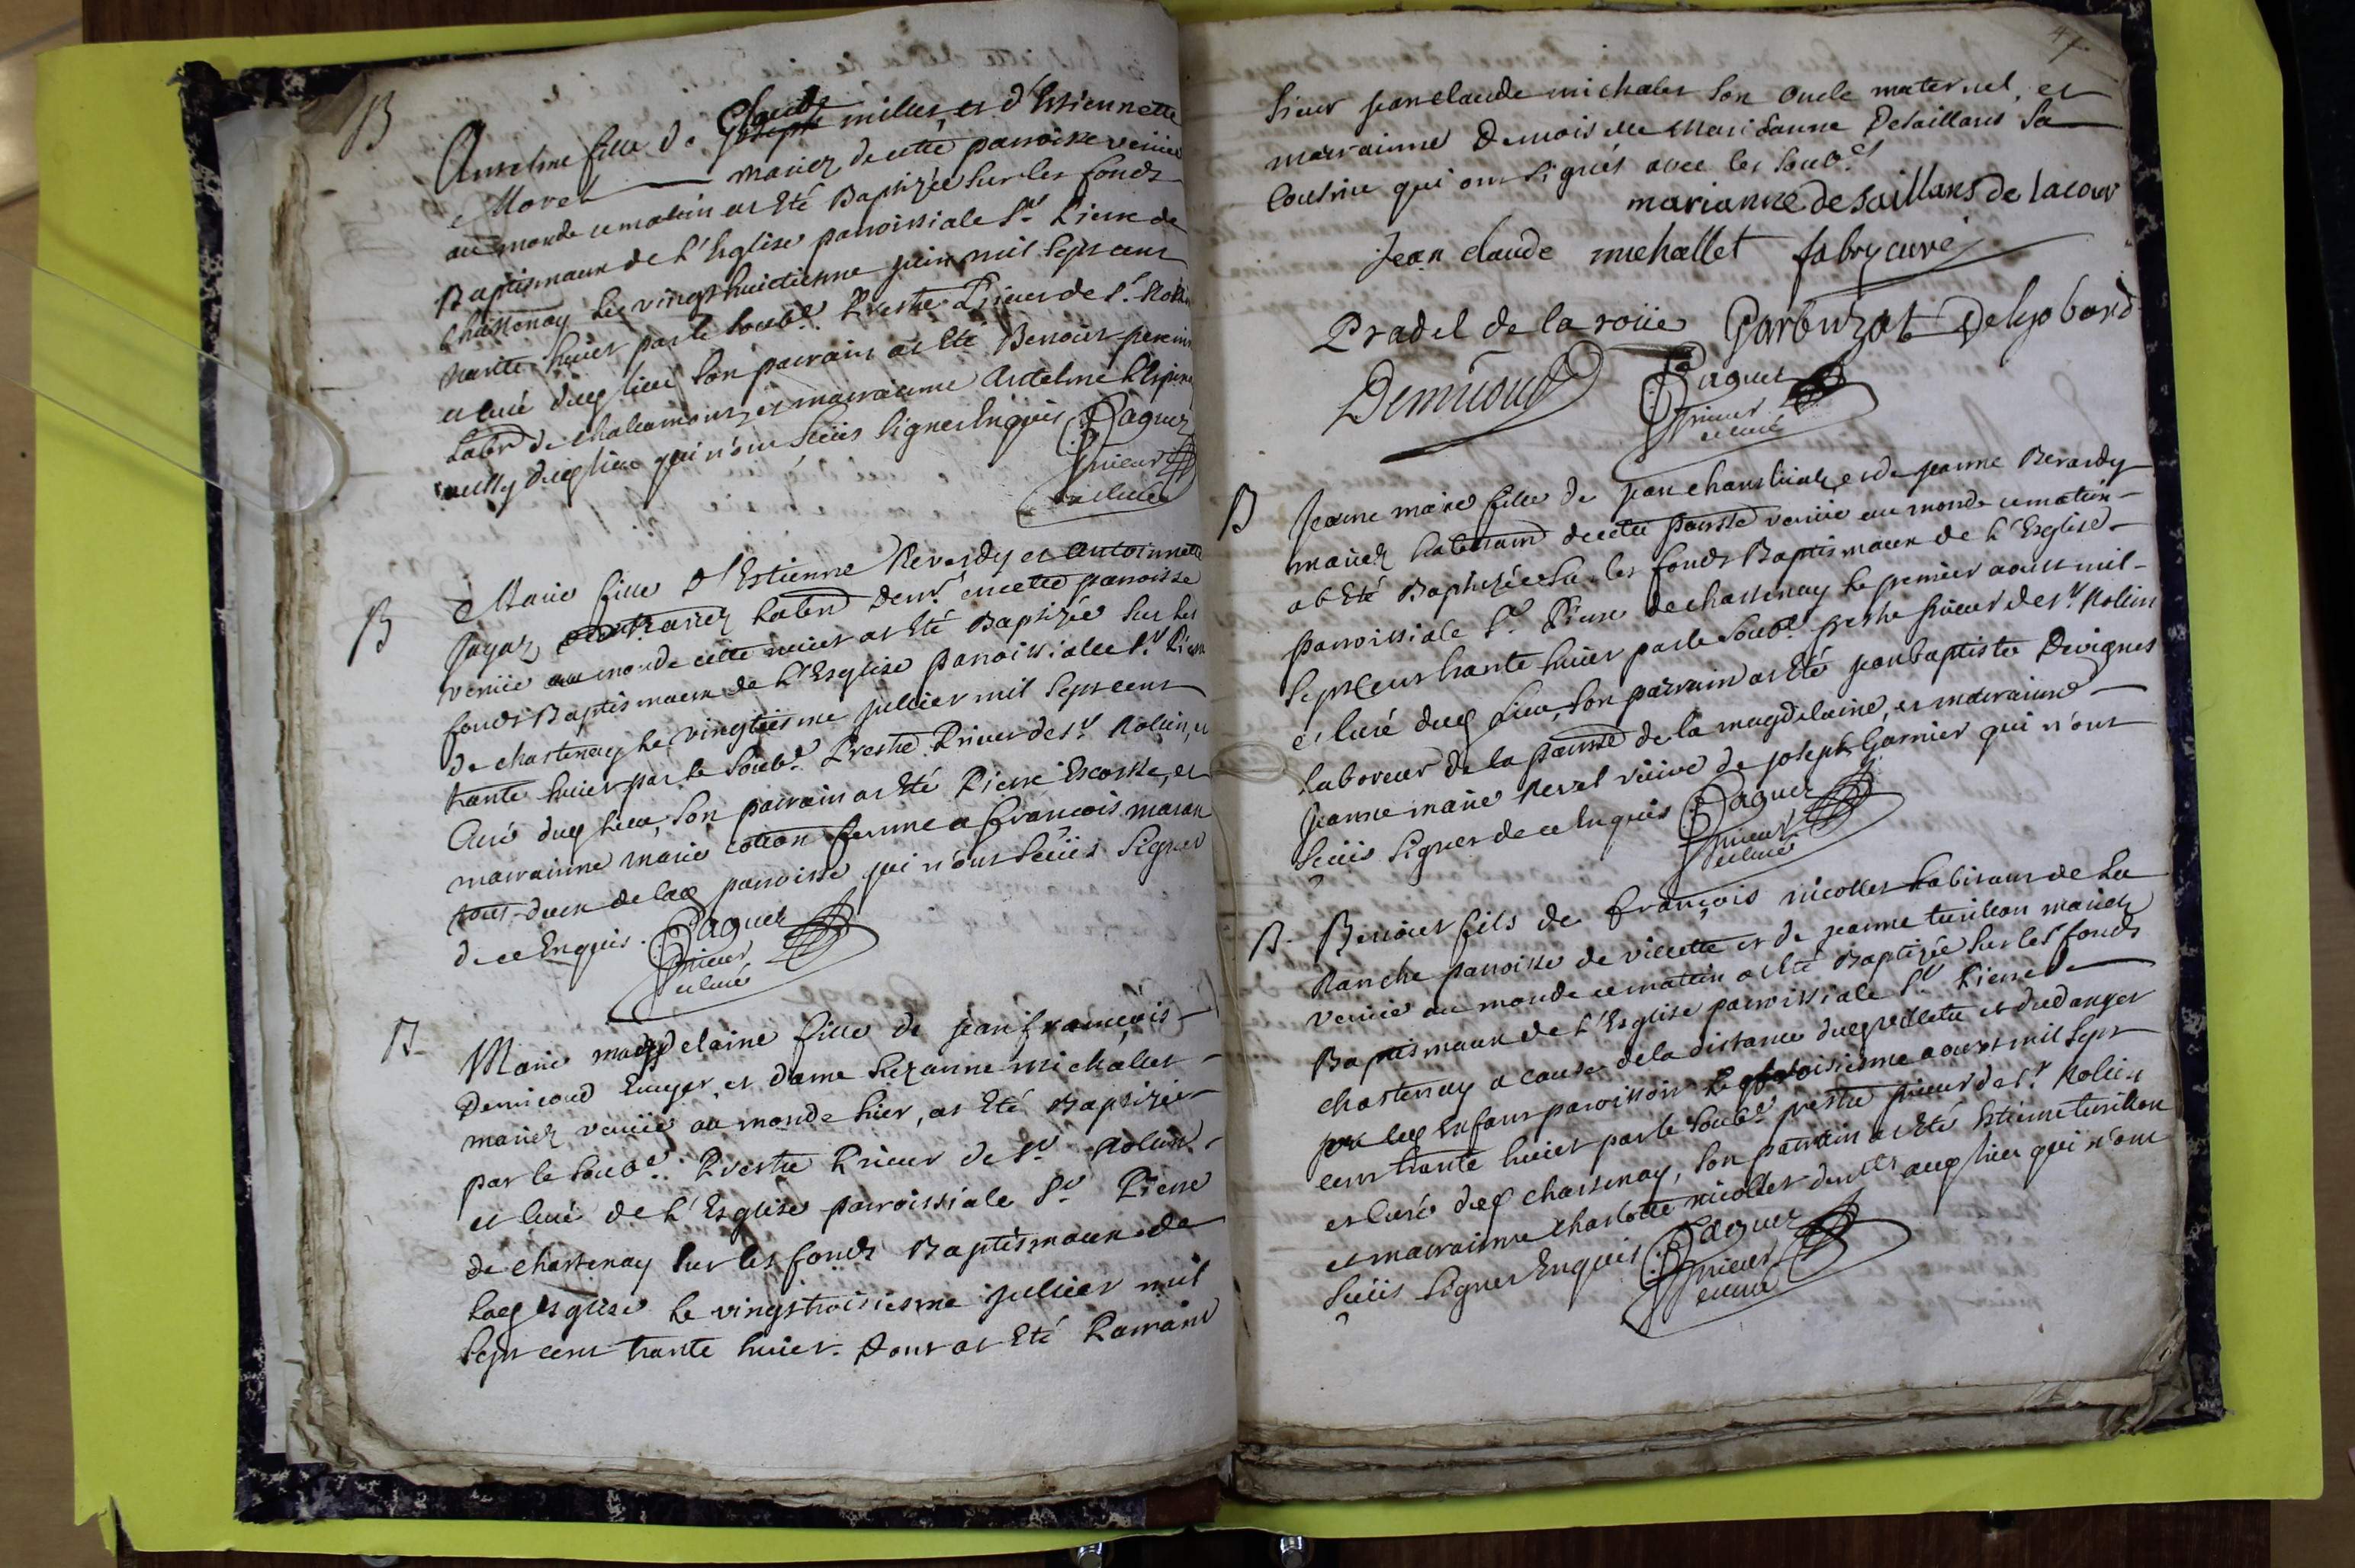 B
Anselme fille de Claude millet, et d'Estiennette
Morel mariez de cette parroisse venüe
au monde ce matin at Eté Baptizée sur les fonds
Baptismaux de l'Eglise parroissiale St. Pierre de
Chastenay le vingthuictiesme juin mil sept cent
trante huict par le soubé. Prestre Prieur de St. Nolin
et curé dud lieu son parrain at Eté Benoist
Labr de chalamont, et marrainne Antelme
dud lieu qui n'ont sceüs signer Enquis Paquet
prieur
et curé
B
Marie fille d'Estienne Reverdy et antoinnette
Jayat, mariez habitd demt en cette parroisse
venüe au monde cette nuict at Eté Baptizée sur les
fonds Baptismaux de l'Esglise parroissialle St. Pierre
de chastenay le vingtiesme jullier mil sept cent
trante huict par le soubé. Prestre Prieur de St. Nolin, et
Curé dud lieu, son parrain at Eté Pierre Escosse, et
marrainne marie cotton femme a francois maran
tous deux de lad parroisse qui n'ont sceüs signer
de ce Enquis. Paquet
prieur
et curé
B
Marie magdelaine fille de jean françois
Demicoud Ecuyer, et dame Suzanne michallet
mariez venüe au monde hier, at Eté Baptizée
par le soubé. Prestre Prieur de St. Nolin
et curé de l'Esglise parroissiale St. Pierre
de chastenay sur les fonds Baptismaux de
lad Esglise le vingtroisiesme jullier mil
sept cent trante huict. Dont at Eté Parrain
47.
Sieur jean claude michalet son oncle maternel, et
marrainne Demoiselle Marianne Desaillans sa
cousine qui ont signés avec les soubés
marianne de Saillans de lacour
Jean claude michallet fabry curé
Pradel de la roüe Garbuzat Delyobard
Demicoud Paquet
prieur
et curé
B
Jeanne marie fille de jean chanstrial, et de jeanne Reverdy
mariez habitand de cette parrsse venüe au monde ce matin
at Eté Baptizée su les fonds Baptismaux de l'Esglise
parroissiale St. Pierre de chastenay le premier aoust mil
septcent trante huict par le soubé prestre prieur de St. Nolin
et curé dud Lieu, son parrain at Eté jean baptiste Devignes
laboreur de la parrsse de la magdelaine, et marrainne
jeanne marie Revel veüve de joseph Garnier qui n'ont
sceüs signer de ce Enquis Paquet
prieur
et curé
B. Benoist fils de françois nicollet habitant de la
Ranche parroisse de villette et de jeanne turillon mariez
venüe au monde ce matin at Eté Baptizée sur les fonds
Baptismaux de l'Esglise parroissiale St. Pierre de
chastenay a cause de la distance dud villette et du danger
led Enfant parroissoir le troisiesme aoust mil sept
cent trante huict par le soubé prestre prieur de St. Nolin
et curé dud chastenay, son parrain at Eté Estienne turillon
et marrainne charlotte nicollet demts aud lieu qui n'ont
sceüs signer Enquis Paquet
prieur
et curé